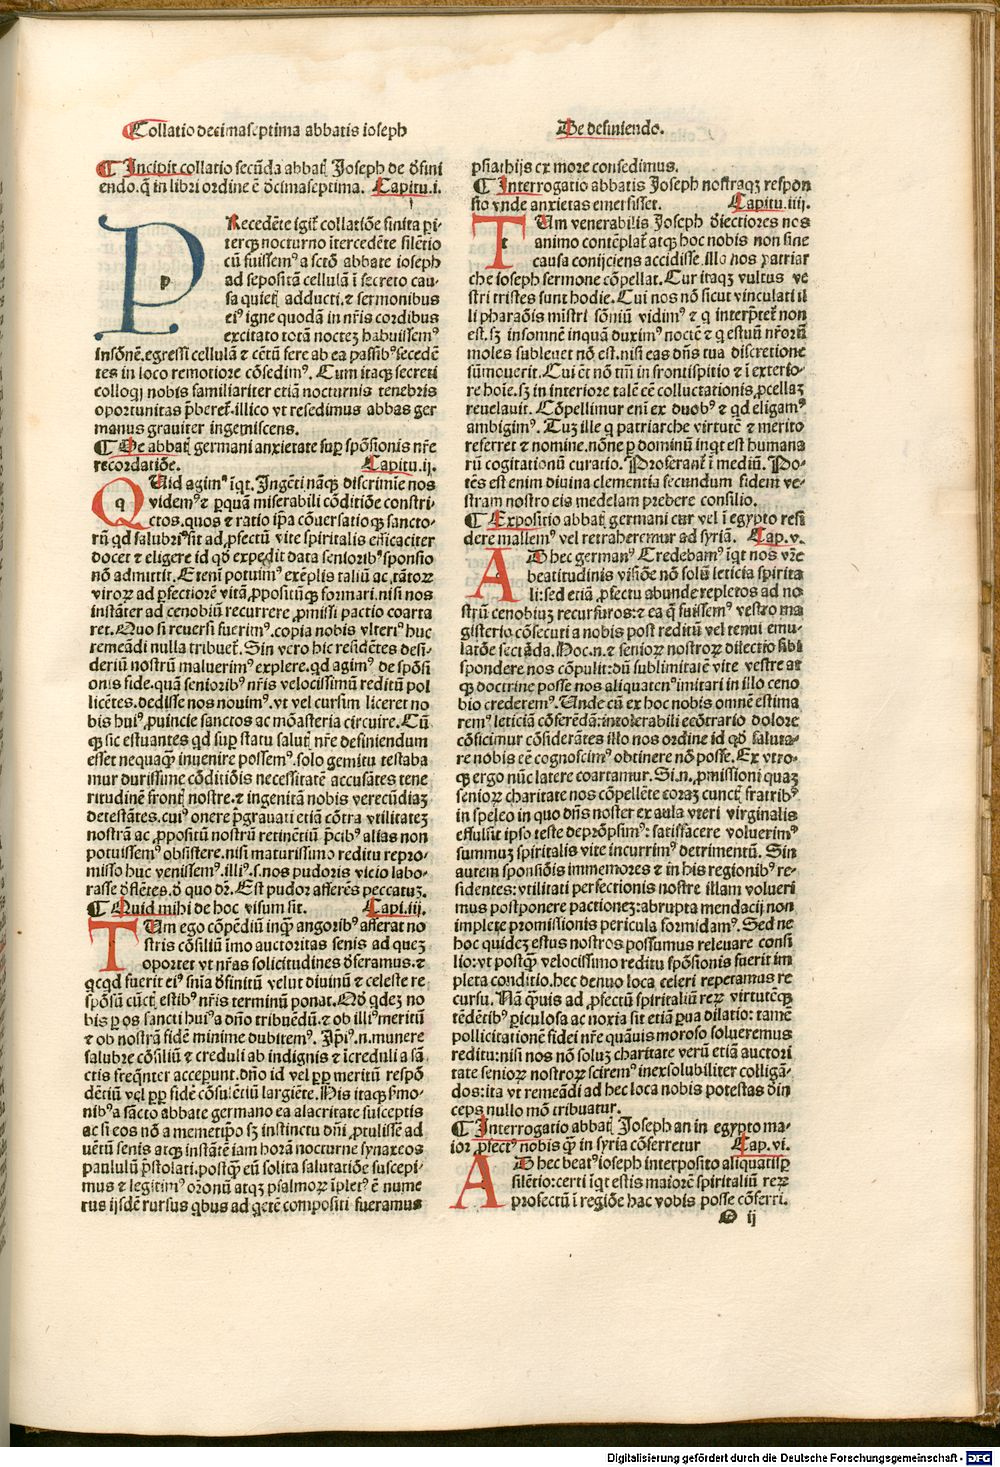 Collatio decimaseptima abbatis ioseph
De definiendo.
¶ Incipit collatio secūda abbatꝭ Joseph de ꝺfini
endo. q̄ in libri ordine ē ꝺcimaseptima. Capitu. i.
PRecedēte igit᷑ collatiōe finita ꝑi-
terqꝫ nocturno ītercedēte silētio
cū fuissemꝰ a sctō abbate ioseph
ad sepositā cellulā ī secreto cau-
sa quietꝭ adducti. ⁊ sermonibus
eiꝰ igne quodā in nr̄is cordibus
excitato totā nocteꝫ habuissemꝰ
insōnē. egressi cellulā ⁊ cētū fere ab ea passibꝰ secedē
tes in loco remotiore cōsedimꝰ. Cum itaqꝫ secreti
colloqij nobis familiariter etiā nocturnis tenebris
oportunitas p̄beret᷑. illico vt resedimus abbas ger
manus grauiter ingemiscens.
¶ De abbatꝭ germani anxietate suꝑ spōsionis nr̄e
recordatiōe. Capitu. ij.
QUid agimꝰ īqt. Ingēti nāqꝫ discrimīe nos
videmꝰ ⁊ ꝑquā miserabili cōditiōe constri-
ctos. quos ⁊ ratio ip̄a cōuersatioqꝫ sancto-
rū qd salubriꝰ sit ad ꝓfectū vite spiritalis efficaciter
docet ⁊ eligere id qd̄ expedit data senioribꝰ sponsio
nō admittit. Etenī potuimꝰ exēplis taliū ac tātoꝝ
viroꝝ ad ꝑfectiorē vitā ꝓpositūqꝫ formari. nisi nos
instāter ad cenobiū recurrere ꝓmissi pactio coarta
ret. Quo si reuersi fuerimꝰ. copia nobis vlteriꝰ huc
remeādi nulla tribuet᷑. Sin vero hic residētes desi-
deriū nostrū maluerimꝰ explere. qd agimꝰ de spōsi
onis fide. quā senioribꝰ nr̄is velocissimū reditū pol
licētes. dedisse nos nouimꝰ. vt vel cursim liceret no
bis huiꝰ ꝓuincie sanctos ac mōasteria circuire. Cū
qꝫ sic estuantes qd suꝑ statu salutꝭ nr̄e definiendum
esset nequaqꝫ inuenire possemꝰ. solo gemitu testaba
mur durissime cōditiōis necessitatē accusātes tene
ritudinē frontꝭ nostre. ⁊ ingenitā nobis verecūdiaꝫ
detestātes. cuiꝰ onere p̄grauati etiā cōtra vtilitateꝫ
nostrā ac ꝓpositū nostrū retinētiū p̄cibꝰ alias non
potuissemꝰ obsistere. nisi maturissimo reditu repro-
misso huc venissemꝰ. illiꝰ. s. nos pudoris vicio labo-
rasse ꝺflētes. ꝺ quo dr̄. Est pudor afferēs peccatuꝫ.
¶ Quid mihi de hoc visum sit. Capi. iij.
TUm ego cōpēdiū inqꝫ angoribꝰ afferat no
stris cōsiliū īmo auctoritas senis ad quez
oportet vt nr̄as solicitudines ꝺferamus. ⁊
qcqd fuerit eiꝰ snīa ꝺfinitū velut diuinū ⁊ celeste re
spōsū cūctꝭ estibꝰ nr̄is terminū ponat. Nō qdeꝫ no
bis ꝑ os sancti huiꝰ a dn̄o tribuēdū. ⁊ ob illiꝰ meritū
⁊ ob nostrā fidē minime dubitemꝰ. Ip̄iꝰ. n. munere
salubre cōsiliū ⁊ creduli ab indignis ⁊ īcreduli a sā
ctis freqn̄ter acceperunt. dn̄o id vel ꝓpꝑ meritū respō
dētiū vel ꝓpꝑ fidē cōsulētiū largiēte. His itaqꝫ s̄mo-
nibꝰ a sācto abbate germano ea alacritate susceptis
ac si eos nō a memetip̄o sꝫ instinctu dn̄i ꝓtulisse ad
uētū senis atqꝫ instātē iam horā nocturne synaxeos
paululū p̄stolati. postqꝫ eū solita salutatiōe suscepi-
mus ⁊ legitimꝰ oronū atqꝫ psalmoꝝ īpletꝰ ē nume
rus ijsdē rursus qbus ad qetē compositi fueramus
psiathijs ex more consedimus.
¶ Interrogatio abbatis Joseph nostraqꝫ respon
sio vnde anxietas emersisset. Capitu. iiij.
TUm venerabilis Joseph ꝺiectiores nos
animo contēplat᷑ atqꝫ hoc nobis non sine
causa conijciens accidisse. illo nos patriar
che ioseph sermone cōpellat. Cur itaqꝫ vultus ve
stri tristes sunt hodie. Cui nos nō sicut vinculati il
li pharaōis mīstri sōniū vidimꝰ ⁊ q interp̄tet᷑ non
est. sꝫ insomnē inquā duximꝰ noctē ⁊ q estuū nr̄orū
moles subleuet nō est. nisi eas dn̄s tua discretione
sūmouerit. Cui ēt nō tm̄ in frontispitio ⁊ ī exterio-
re hoīe. sꝫ in interiore talē cē colluctationis ꝓcellaꝫ
reuelauit. Cōpellimur enī ex duobꝰ ⁊ qd eligamꝰ
ambigimꝰ. Tuꝫ ille q patriarche virtutē ⁊ merito
referret ⁊ nomine. nōne ꝑ dominū inqt est humana
rū cogitationū curatio. Proferant᷑ ī mediū. Po-
tēs est enim diuina clementia secundum fidem ve-
stram nostro eis medelam prebere consilio.
¶ Expositio abbatꝭ germani cur vel ī egypto resi
dere mallemꝰ vel retraheremur ad syriā. Cap. v.
AD hec germanꝰ Credebamꝰ īqt nos vr̄e
beatitudinis visiōe nō solū leticia spirita
li: sed etiā ꝓfectu abunde repletos ad no
strū cenobiuꝫ recursuros: ⁊ ea q̄ fuissemꝰ vestro ma
gisterio cōsecuti a nobis post reditū vel tenui emu-
latōe sectāda. Hoc. n. ⁊ senioꝝ nostroꝝ dilectio sibi
spondere nos cōpulit: dū sublimitatē vite vestre at
qꝫ doctrine posse nos aliquatenꝰ imitari in illo ceno
bio crederemꝰ. Unde cū ex hoc nobis omnē estima
remꝰ leticiā cōferēdā: intolerabili ecōtrario dolore
cōficimur cōsiderātes illo nos ordine id qd̄ saluta-
re nobis cē cognoscimꝰ obtinere nō posse. Ex vtro-
qꝫ ergo nūc latere coartamur. Si. n. ꝓmissioni quaꝫ
senioꝝ charitate nos cōpellēte coraꝫ cunctꝭ fratribꝰ
in speleo in quo dn̄s noster ex aula vteri virginalis
effulsit ipso teste deprōpsimꝰ: satisfacere voluerimꝰ
summuꝫ spiritalis vite incurrimꝰ detrimentū. Sin
autem sponsiōis immemores ⁊ in his regionibꝰ re-
sidentes: vtilitati perfectionis nostre illam volueri
mus postponere pactioneꝫ: abrupta mendacij non
implete promissionis pericula formidamꝰ. Sed ne
hoc quideꝫ estus nostros possumus releuare consi
lio: vt postqꝫ velocissimo reditu spōsionis fuerit im
pleta conditio. hec denuo loca celeri repetamus re
cursu. Nā q̄uis ad ꝓfectū spiritaliū reꝝ virtutēqꝫ
tēdētibꝰ ꝑiculosa ac noxia sit etiā ꝑua dilatio: tamē
pollicitationē fidei nr̄e quāuis moroso solueremus
reditu: nisi nos nō soluꝫ charitate verū etiā auctori
tate senioꝝ nostroꝝ sciremꝰ inexsolubiliter colligā-
dos: ita vt remeādi ad hec loca nobis potestas ꝺin
ceps nullo mō tribuatur.
¶ Interrogatio abbatꝭ Joseph an in egypto ma-
ior ꝓfectꝰ nobis qꝫ in syria cōferretur Cap. vi.
AD hec beatꝰ ioseph interposito aliquantisꝑ
silētio: certi īqt estis maiorē spiritaliū reꝝ
profectū ī regiōe hac vobis posse cōferri.
O ij
Digitalisierung gefördert durch die Deutsche Forschungsgemeinschaft - DFG